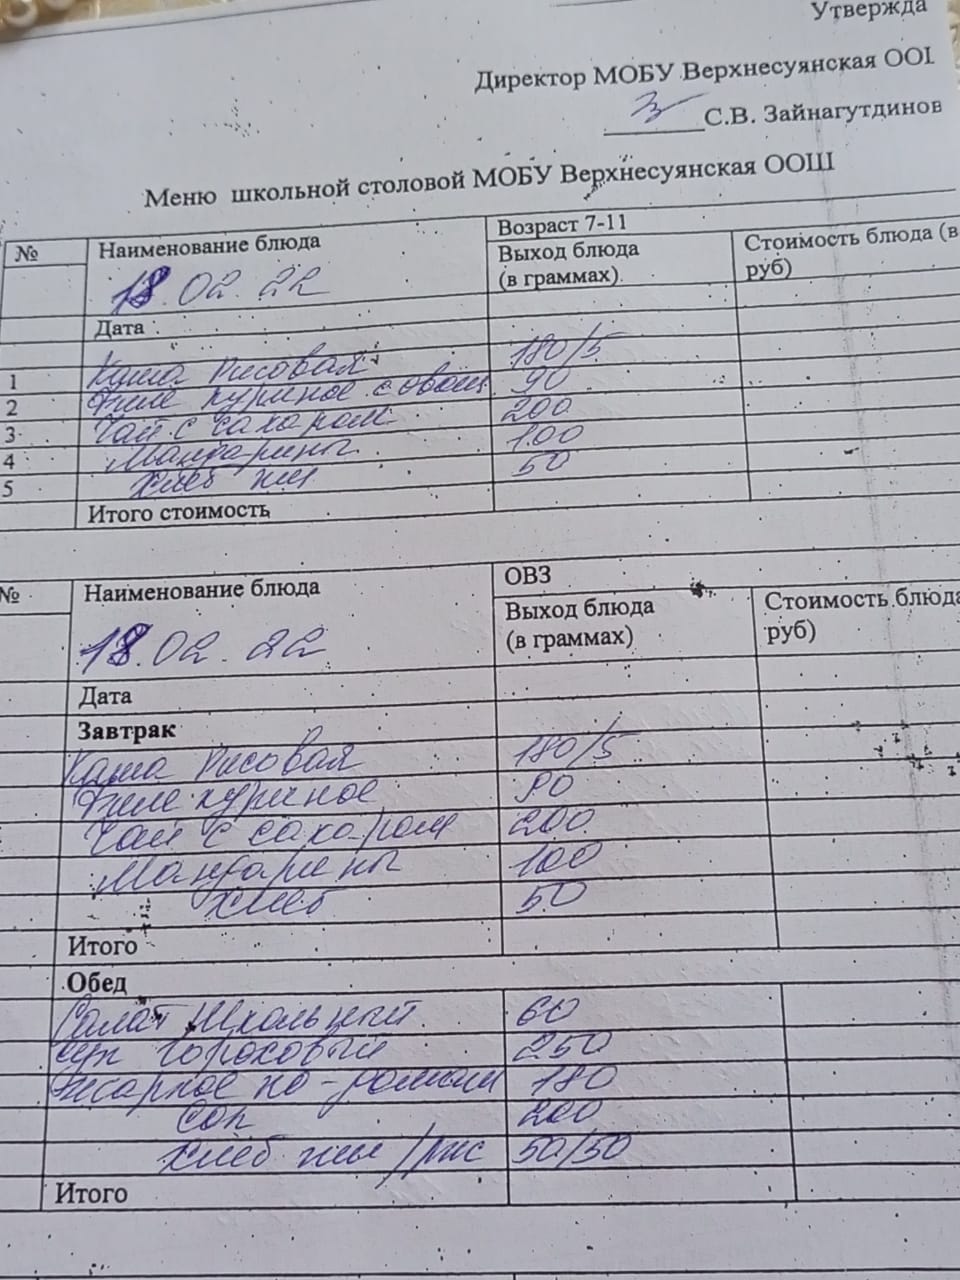 Утвержда
Директор МОБУ Верхнесуянская ООШ
С.В. Зайнагутдинов
Меню школьной столовой МОБУ Верхнесуянская ООШ
№ Наименование блюда Возраст 7-11
Выход блюда (в граммах) Стоимость блюда (в руб)
18.02.22
Дата
1 Каша рисовая 180/5
2 Филе куриное с овощ 90
3 Чай с сахаром 200
4 Мандарины 100
5 Хлеб пш 50
Итого стоимость
№ Наименование блюда ОВЗ
Выход блюда (в граммах) Стоимость блюда руб)
18.02.22
Дата
Завтрак
Каша рисовая 180/5
Филе куриное 90
Чай с сахаром 200
Мандарины 100
Хлеб 50
Итого
Обед
Салат Школьный 60
Суп Гороховый 250
Жаркое по-домаш 180
Сок 200
Хлеб пш/рж 50/50
Итого